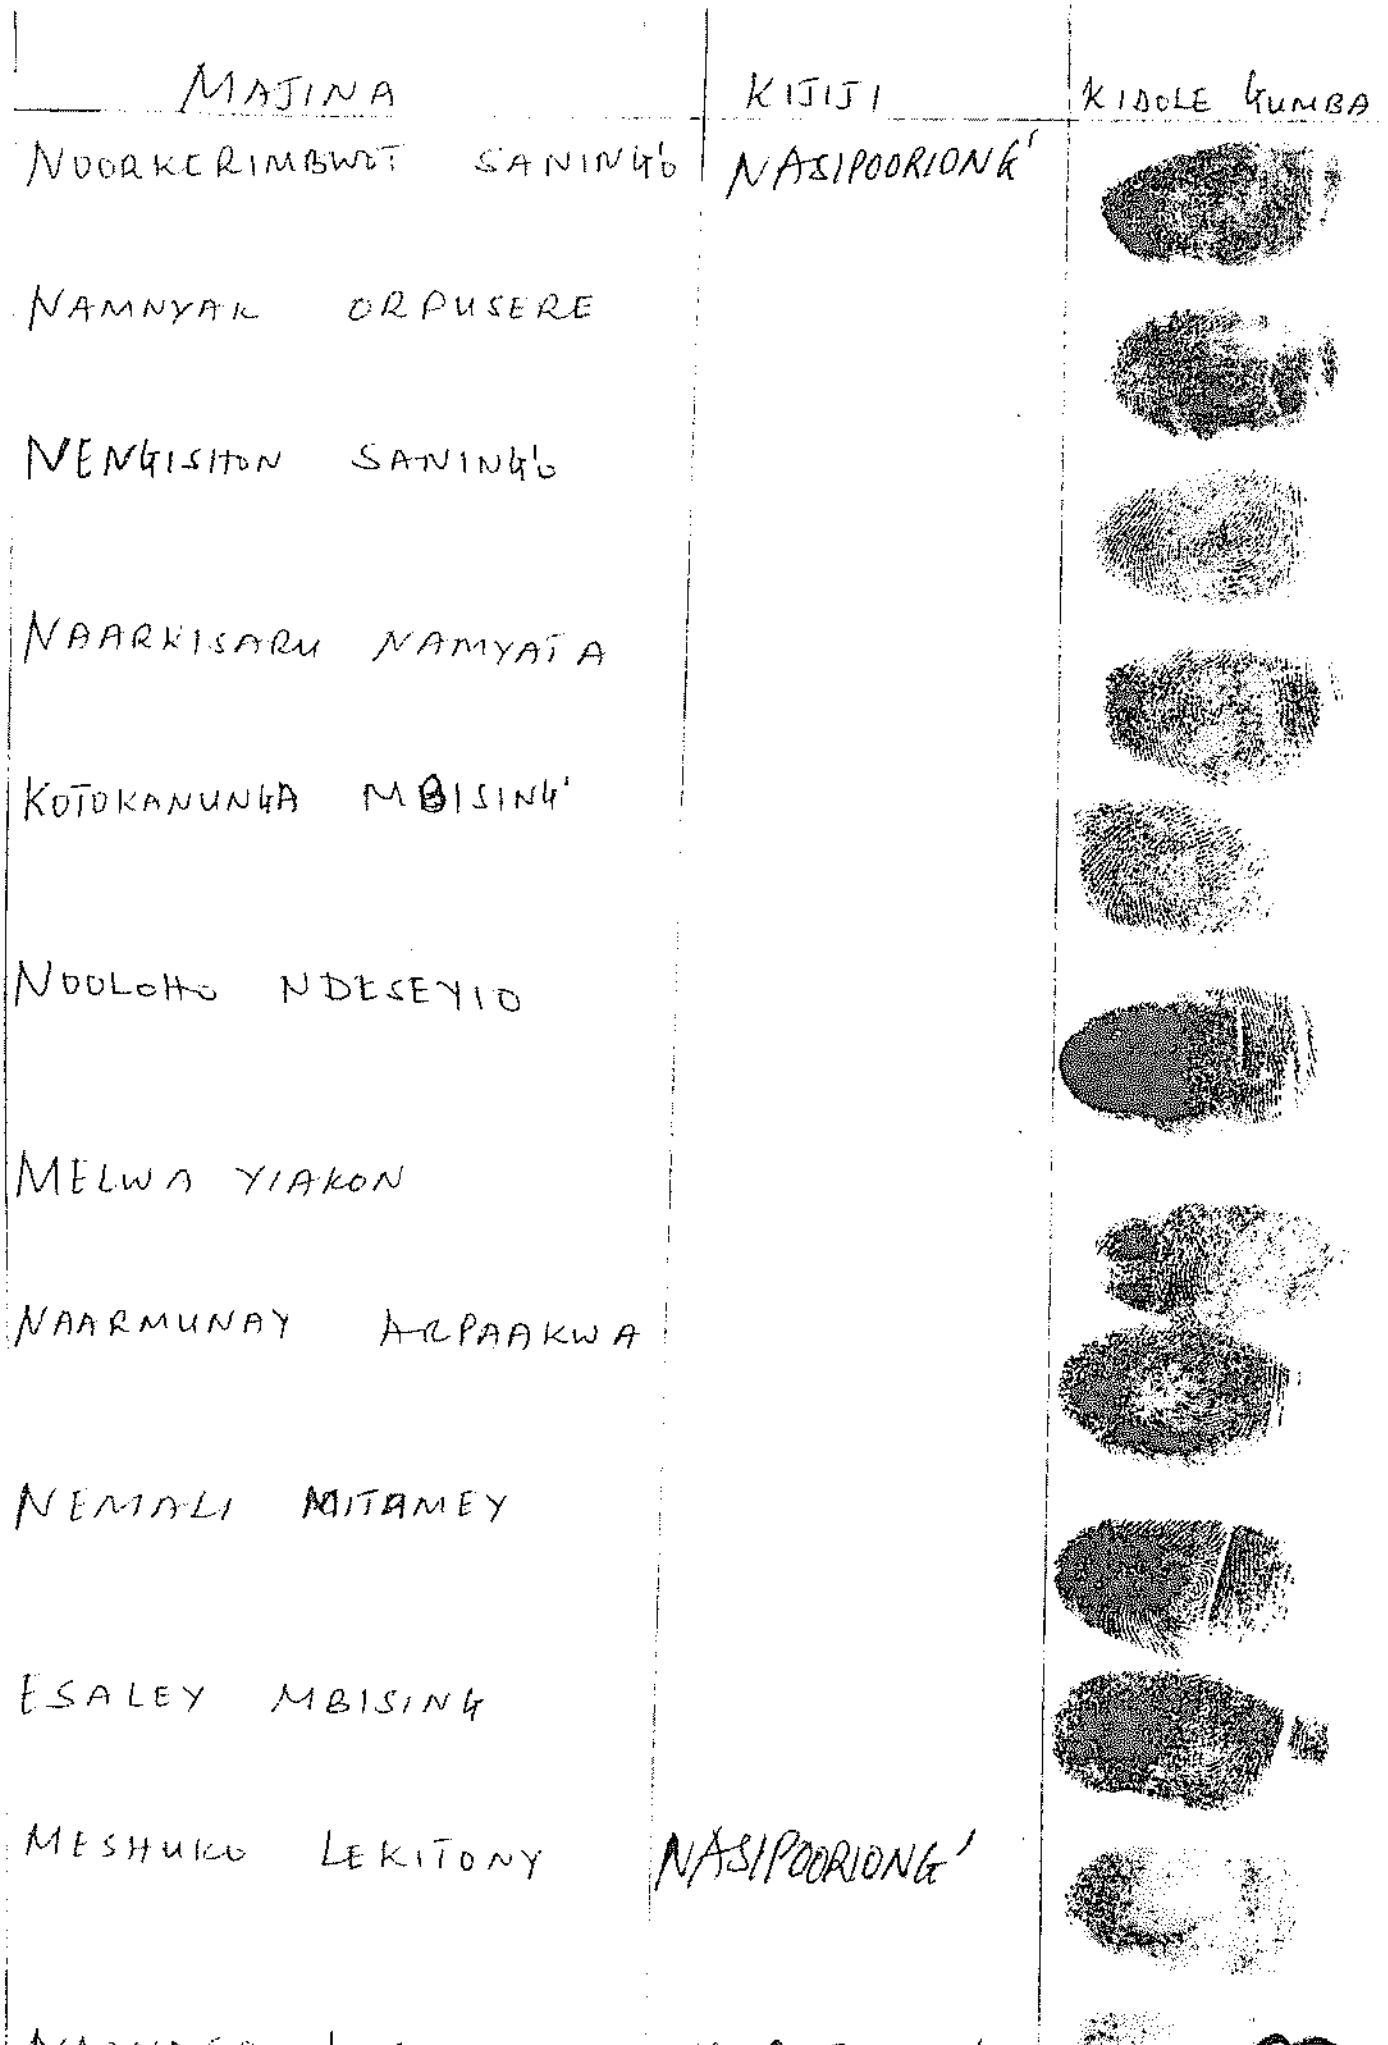 MAJINA KIJIJI KIDOLE GUMBA
NOORKERIMBWOT SANING'O NASIPOORIONG'
NAMNYAK ORPUSERE
NENGISHON SANING'O
NAARKISARU NAMYATA
KOTOKANUNGA MBISING'
NOOLOHO NDESEYIO
MELWA YIAKON
NAARMUNAY ARPAAKWA
NEMALI MITAMEY
ESALEY MBISING
MESHUKO LEKITONY NASIPOORIONG'